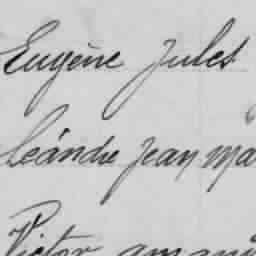 Eugène Jules
Léandre Jean Ma
Victor